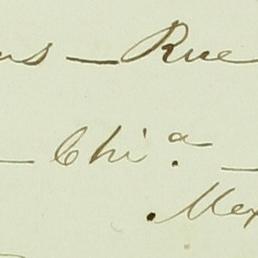 — Rue
— Chiª. —
Mex